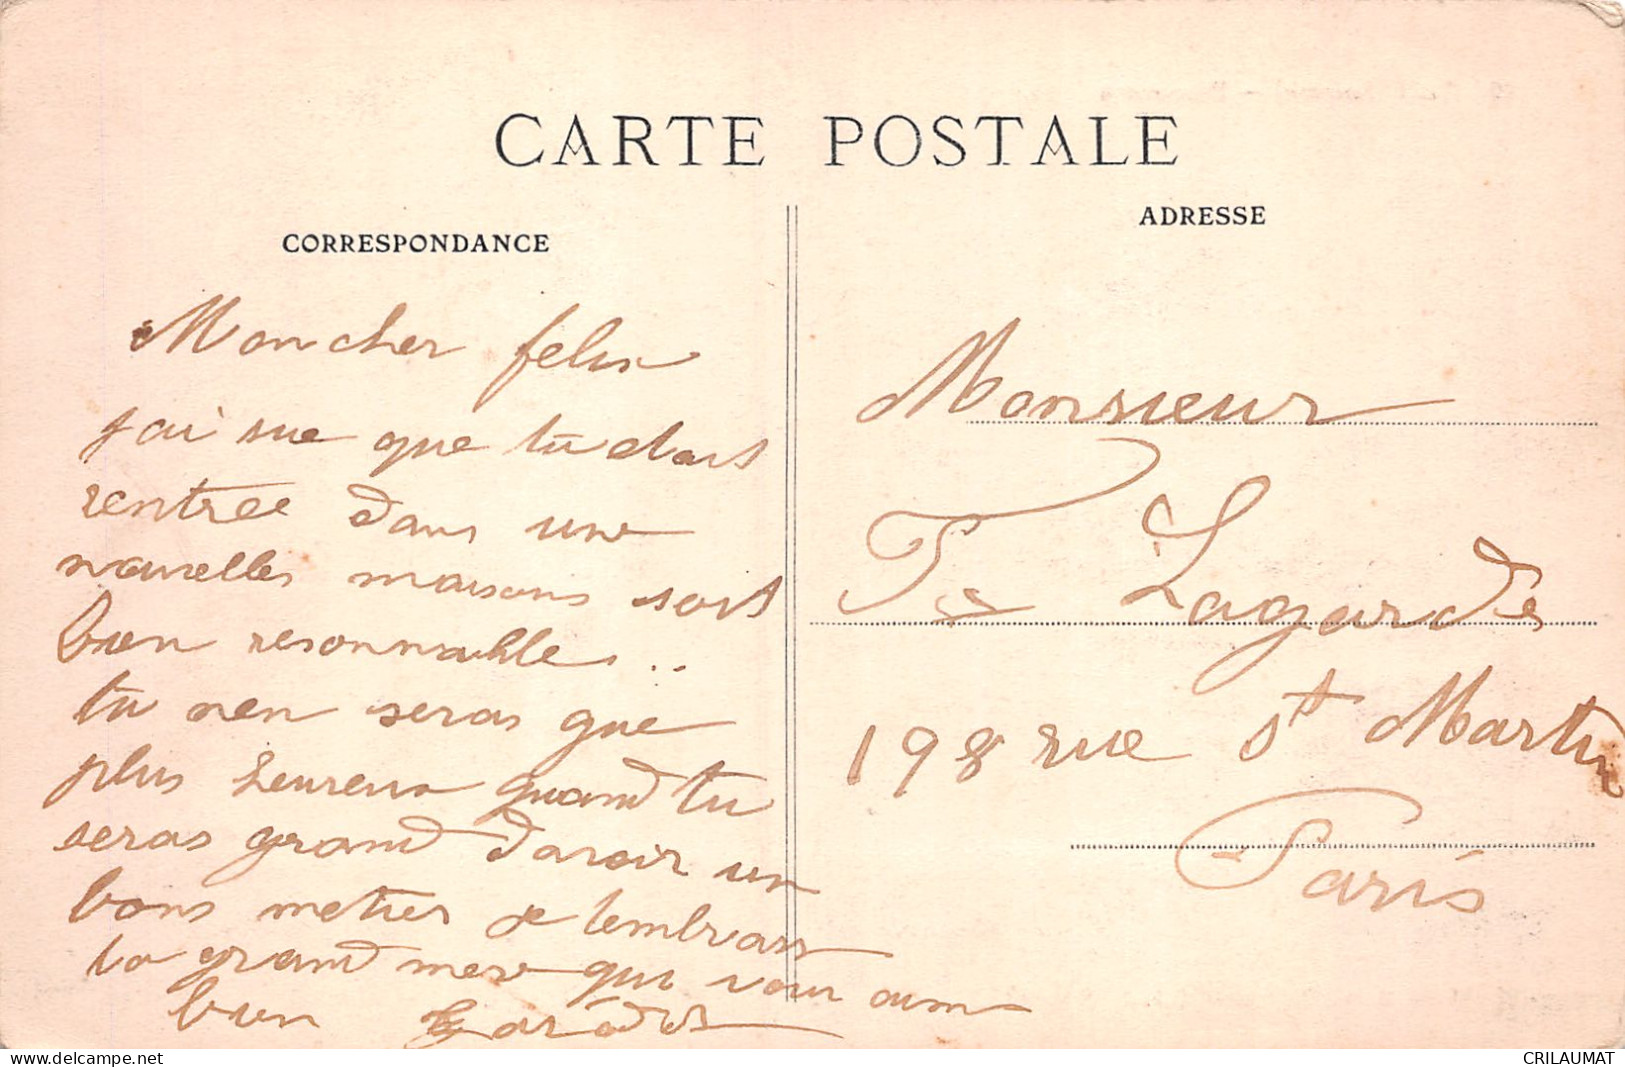 CARTE POSTALE
CORRESPONDANCE
ADRESSE
Mon cher felix
jai sue que tu dois
rentree dans une
nouvelles maisons sois
bien resonnables ..
tu nen seras que
plus heureux quand tu
seras grand davoir un
bons metier je tembrass
ta grand mere qui vous aime
bien
Monsieur
F Lagardes
198 rue St Martin
Paris
www.delcampe.net
CRILAUMAT